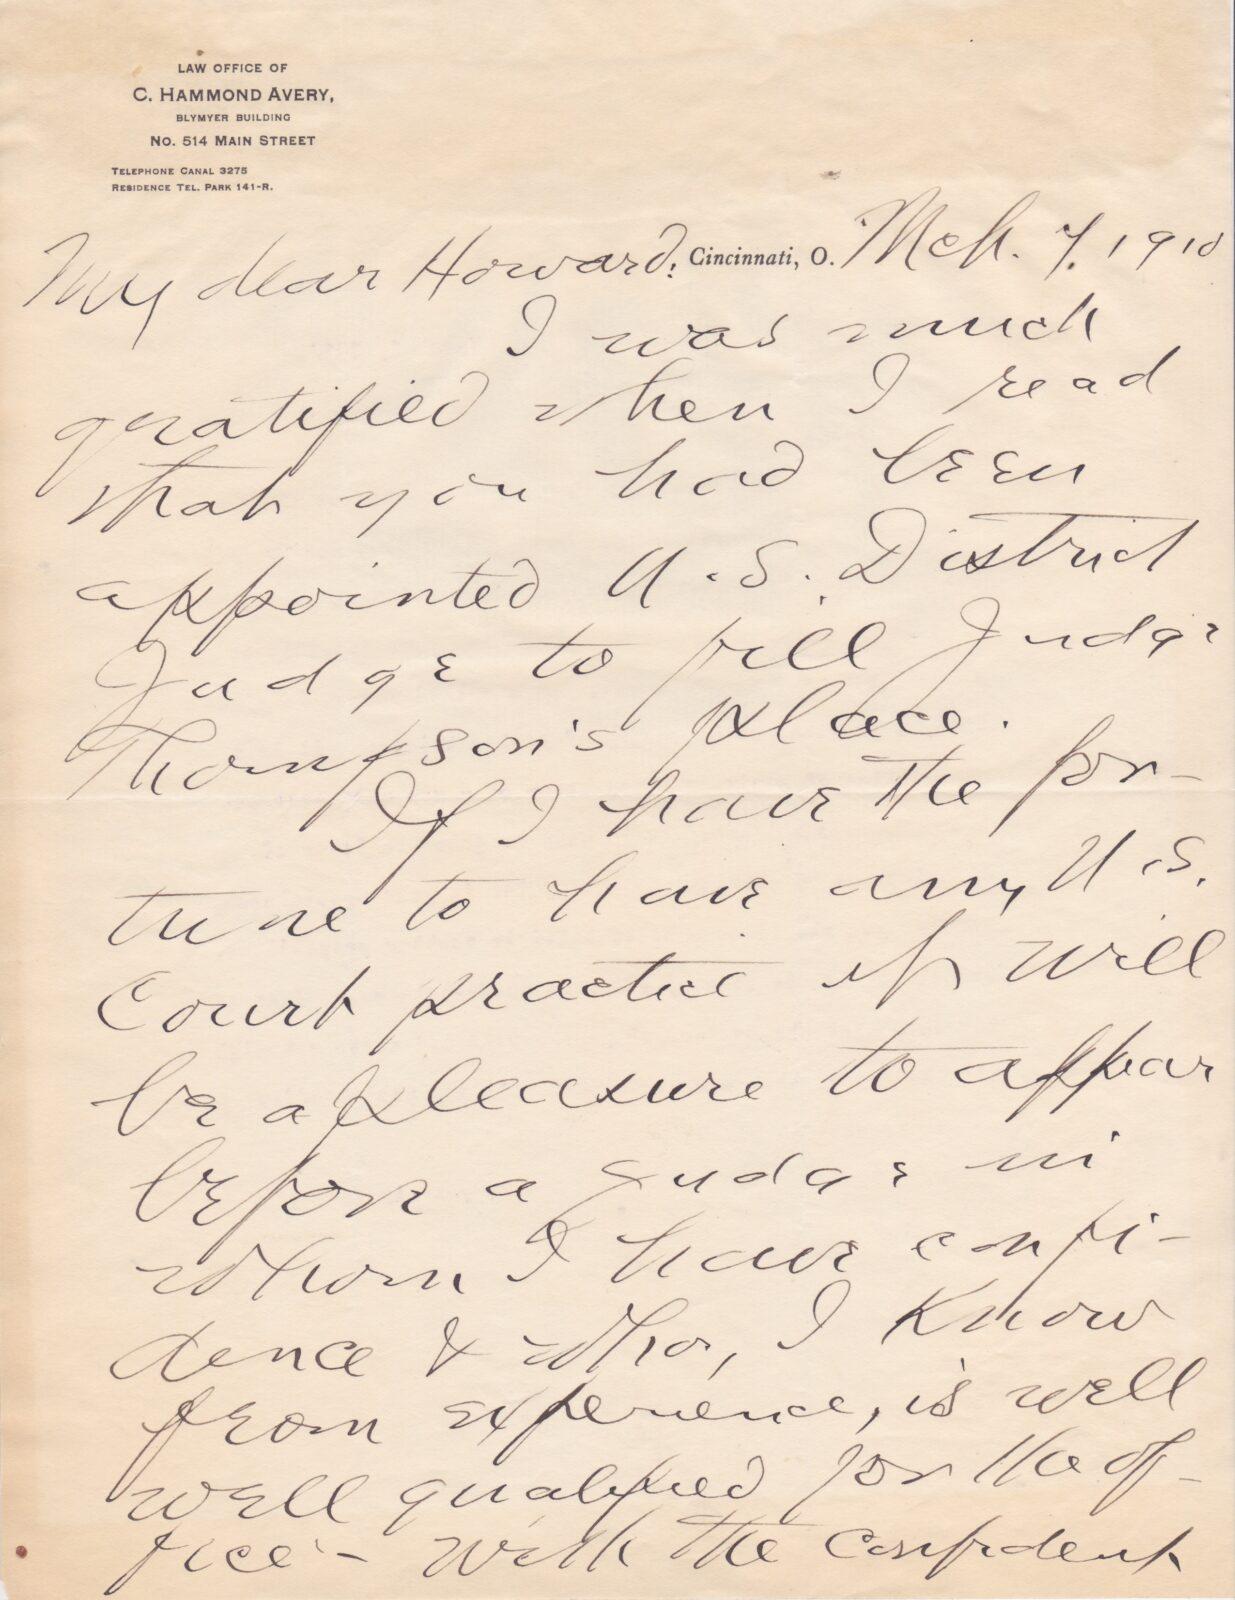 LAW OFFICE OF
C. HAMMOND AVERY,
BLYMYER BUILDING
No. 514 MAIN STREET
TELEPHONE CANAL 3275
RESIDENCE TEL. PARK 141-R.
Cincinnati, O. Mch. 7. 1910
My dear Howard,
I was much
gratified when I read
that you had been
appointed U.S. District
Judge to fill Judge
Thompson's place.
If I have the for-
tune to have any U.S.
Court practice it will
be a pleasure to appear
before a judge in
whom I have confi-
dence & who, I know
from experience, is well
well qualified for the of-
fice - With the confident